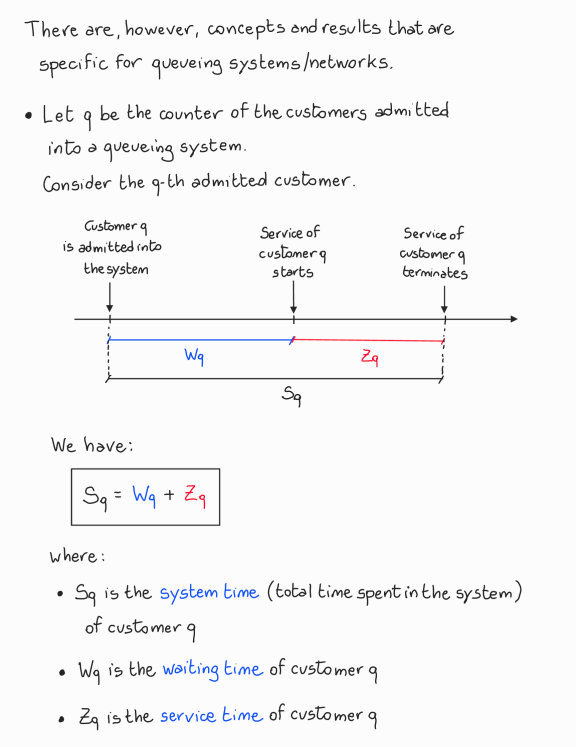 There are, however, concepts and results that are
specific for queueing systems/networks.
• Let q be the counter of the customers admitted
into a queueing system.
Consider the q-th admitted customer.
Customer q
is admitted into
the system
Service of
customer q
starts
Service of
customer q
terminates
Wq
Zq
Sq
We have:
Sq = Wq + Zq
where:
• Sq is the system time (total time spent in the system)
of customer q
• Wq is the waiting time of customer q
• Zq is the service time of customer q